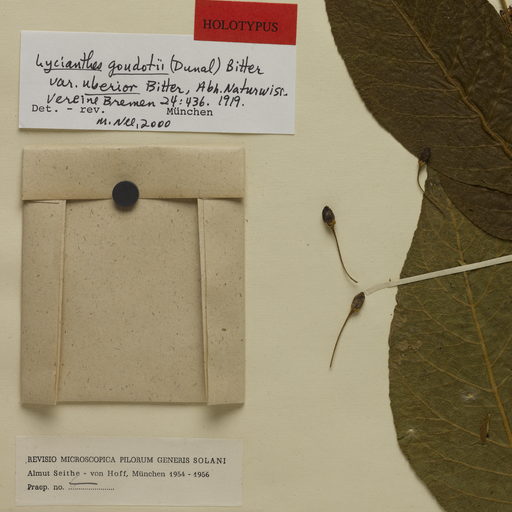 HOLOTYPUS
Lycianthes goudotii (Dunal) Bitter
var. uberior Bitter, Abh. Naturwiss.
Vereine Bremen 24:436. 1919.
Det. - rev. München
M. Nee, 2000
REVISIO MICROSCOPICA PILORUM GENERIS SOLANI
Almut Seithe - von Hoff, München 1954 - 1956
Praep. no. ......................